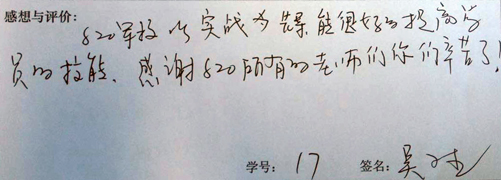 感想与评价:
820军校以实战为课能很好的提高学
员的技能、感谢820所有的老师们你们辛苦了!
学号: 17 签名: 吴